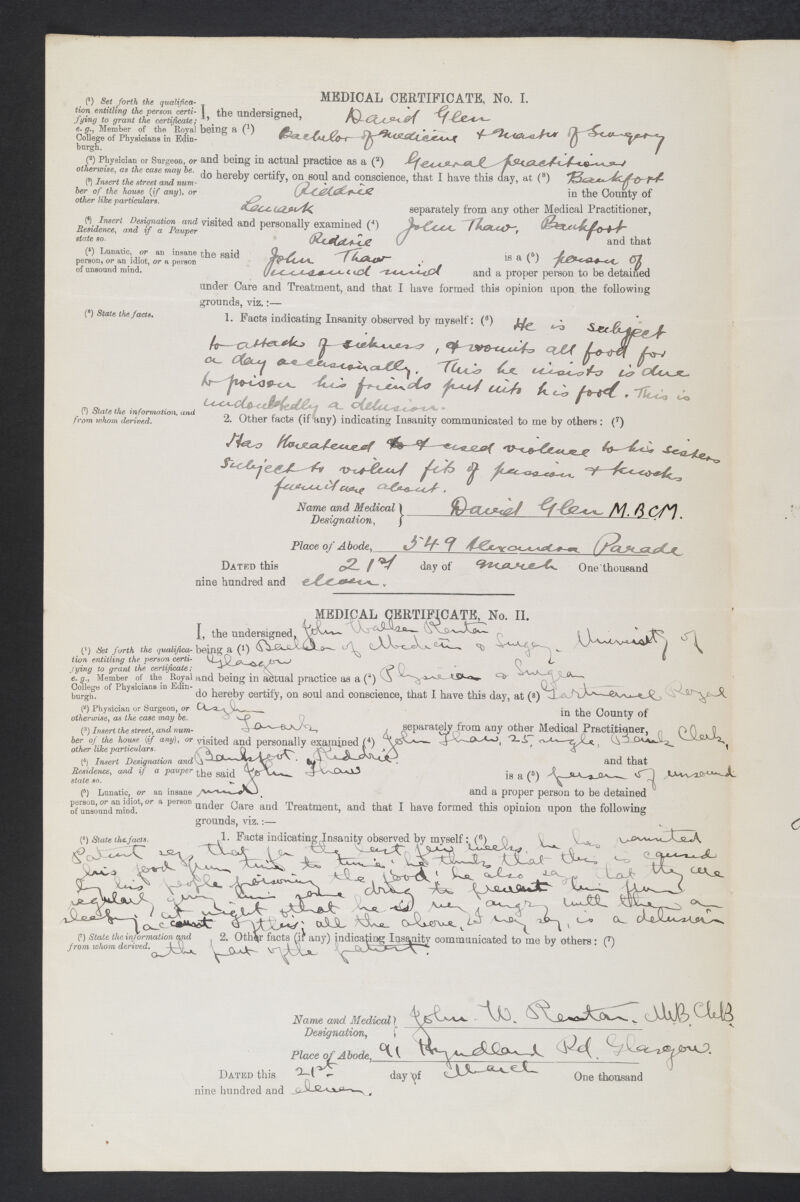 MEDICAL CERTIFICATE, No. I.
(¹) Set forth the qualifica-
tion entitling the person certi-
fying to grant the certificate;
e. g., Member of the Royal
College of Physicians in Edin-
burgh.
I, the undersigned, David Glen
being a (¹) Bachelor of Medicine & Master of Surgery
(²) Physician or Surgeon, or
otherwise, as the case may be.
and being in actual practice as a (²) General practitioner
(³) Insert the street and num-
ber of the house (if any), or
other like particulars.
do hereby certify, on soul and conscience, that I have this day, at (³) Bankfoot
Riddrie in the County of
Lanark separately from any other Medical Practitioner,
(⁴) Insert Designation and
Residence, and if a Pauper
state so.
visited and personally examined (⁴) John Thaw, Bankfoot
Riddrie and that
(⁵) Lunatic, or an insane
person, or an idiot, or a person
of unsound mind.
the said John Thaw is a (⁵) person of
unsound mind and a proper person to be detained
under Care and Treatment, and that I have formed this opinion upon the following
grounds, viz.:—
(⁶) State the facts.
1. Facts indicating Insanity observed by myself: (⁶) He is subject
to attacks of sickness, & vomits all food for
a day occasionally. This he insists is due
to poison his friends put into his food. This is
undoubtedly a delusion.
(⁷) State the information, and
from whom derived.
2. Other facts (if any) indicating Insanity communicated to me by others: (⁷)
Has threatened & used violence to his sisters
Subject to violent fits of passion & knocks
furniture about.
Name and Medical Designation, David Glen M.B.C.M.
Place of Abode, 549 Alexandra Parade
DATED this 21st day of March One thousand
nine hundred and eleven.
MEDICAL CERTIFICATE, No. II.
I, the undersigned, John Wallace Renton
(¹) Set forth the qualifica-
tion entitling the person certi-
fying to grant the certificate;
e. g., Member of the Royal
College of Physicians in Edin-
burgh.
being a (¹) Bachelor of Medicine & Surgery. University of
Glasgow
and being in actual practice as a (²) Physician & Surgeon
(²) Physician or Surgeon, or
otherwise, as the case may be.
do hereby certify, on soul and conscience, that I have this day, at (³) Gartnavel Royal
Asylum in the County of
Lanark separately from any other Medical Practitioner,
(³) Insert the street, and num-
ber of the house (if any), or
other like particulars.
visited and personally examined (⁴) John Thaw, 25, single, Bank Clerk,
(⁴) Insert Designation and
Residence, and if a pauper
state so.
Bankfoot. Riddrie. and that
the said John Thaw is a (⁵) person of unsound
(⁵) Lunatic, or an insane
person, or an idiot, or a person
of unsound mind.
mind. and a proper person to be detained
under Care and Treatment, and that I have formed this opinion upon the following
grounds, viz.:—
(⁶) State the facts.
1. Facts indicating Insanity observed by myself: (⁶)
Patient says that for the last few weeks he has vomited
his food from time to time: he thinks that this is caused
by his people poisoning the food: he also says that they are
regularly giving him some drug to prevent him from
sleeping at night & that he is very angry with them on
account of this: all the above, I may say, is a delusion
(⁷) State the information and
from whom derived.
2. Other facts (if any) indicating Insanity communicated to me by others: (⁷)
on the part of the patient.
Name and Medical Designation, John W. Renton. M.B. Ch.B.
Place of Abode, 91 Hyndland Rd. Glasgow.
DATED this 21st day of March One thousand
nine hundred and eleven.